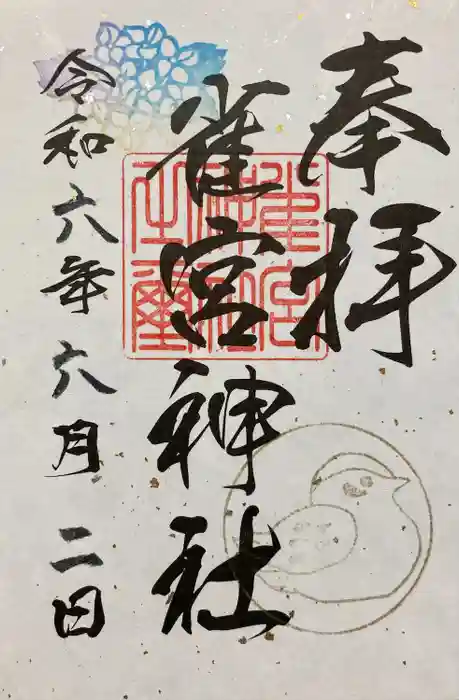 奉拝
雀宮神社
雀宮神社之璽
令和六年六月二日